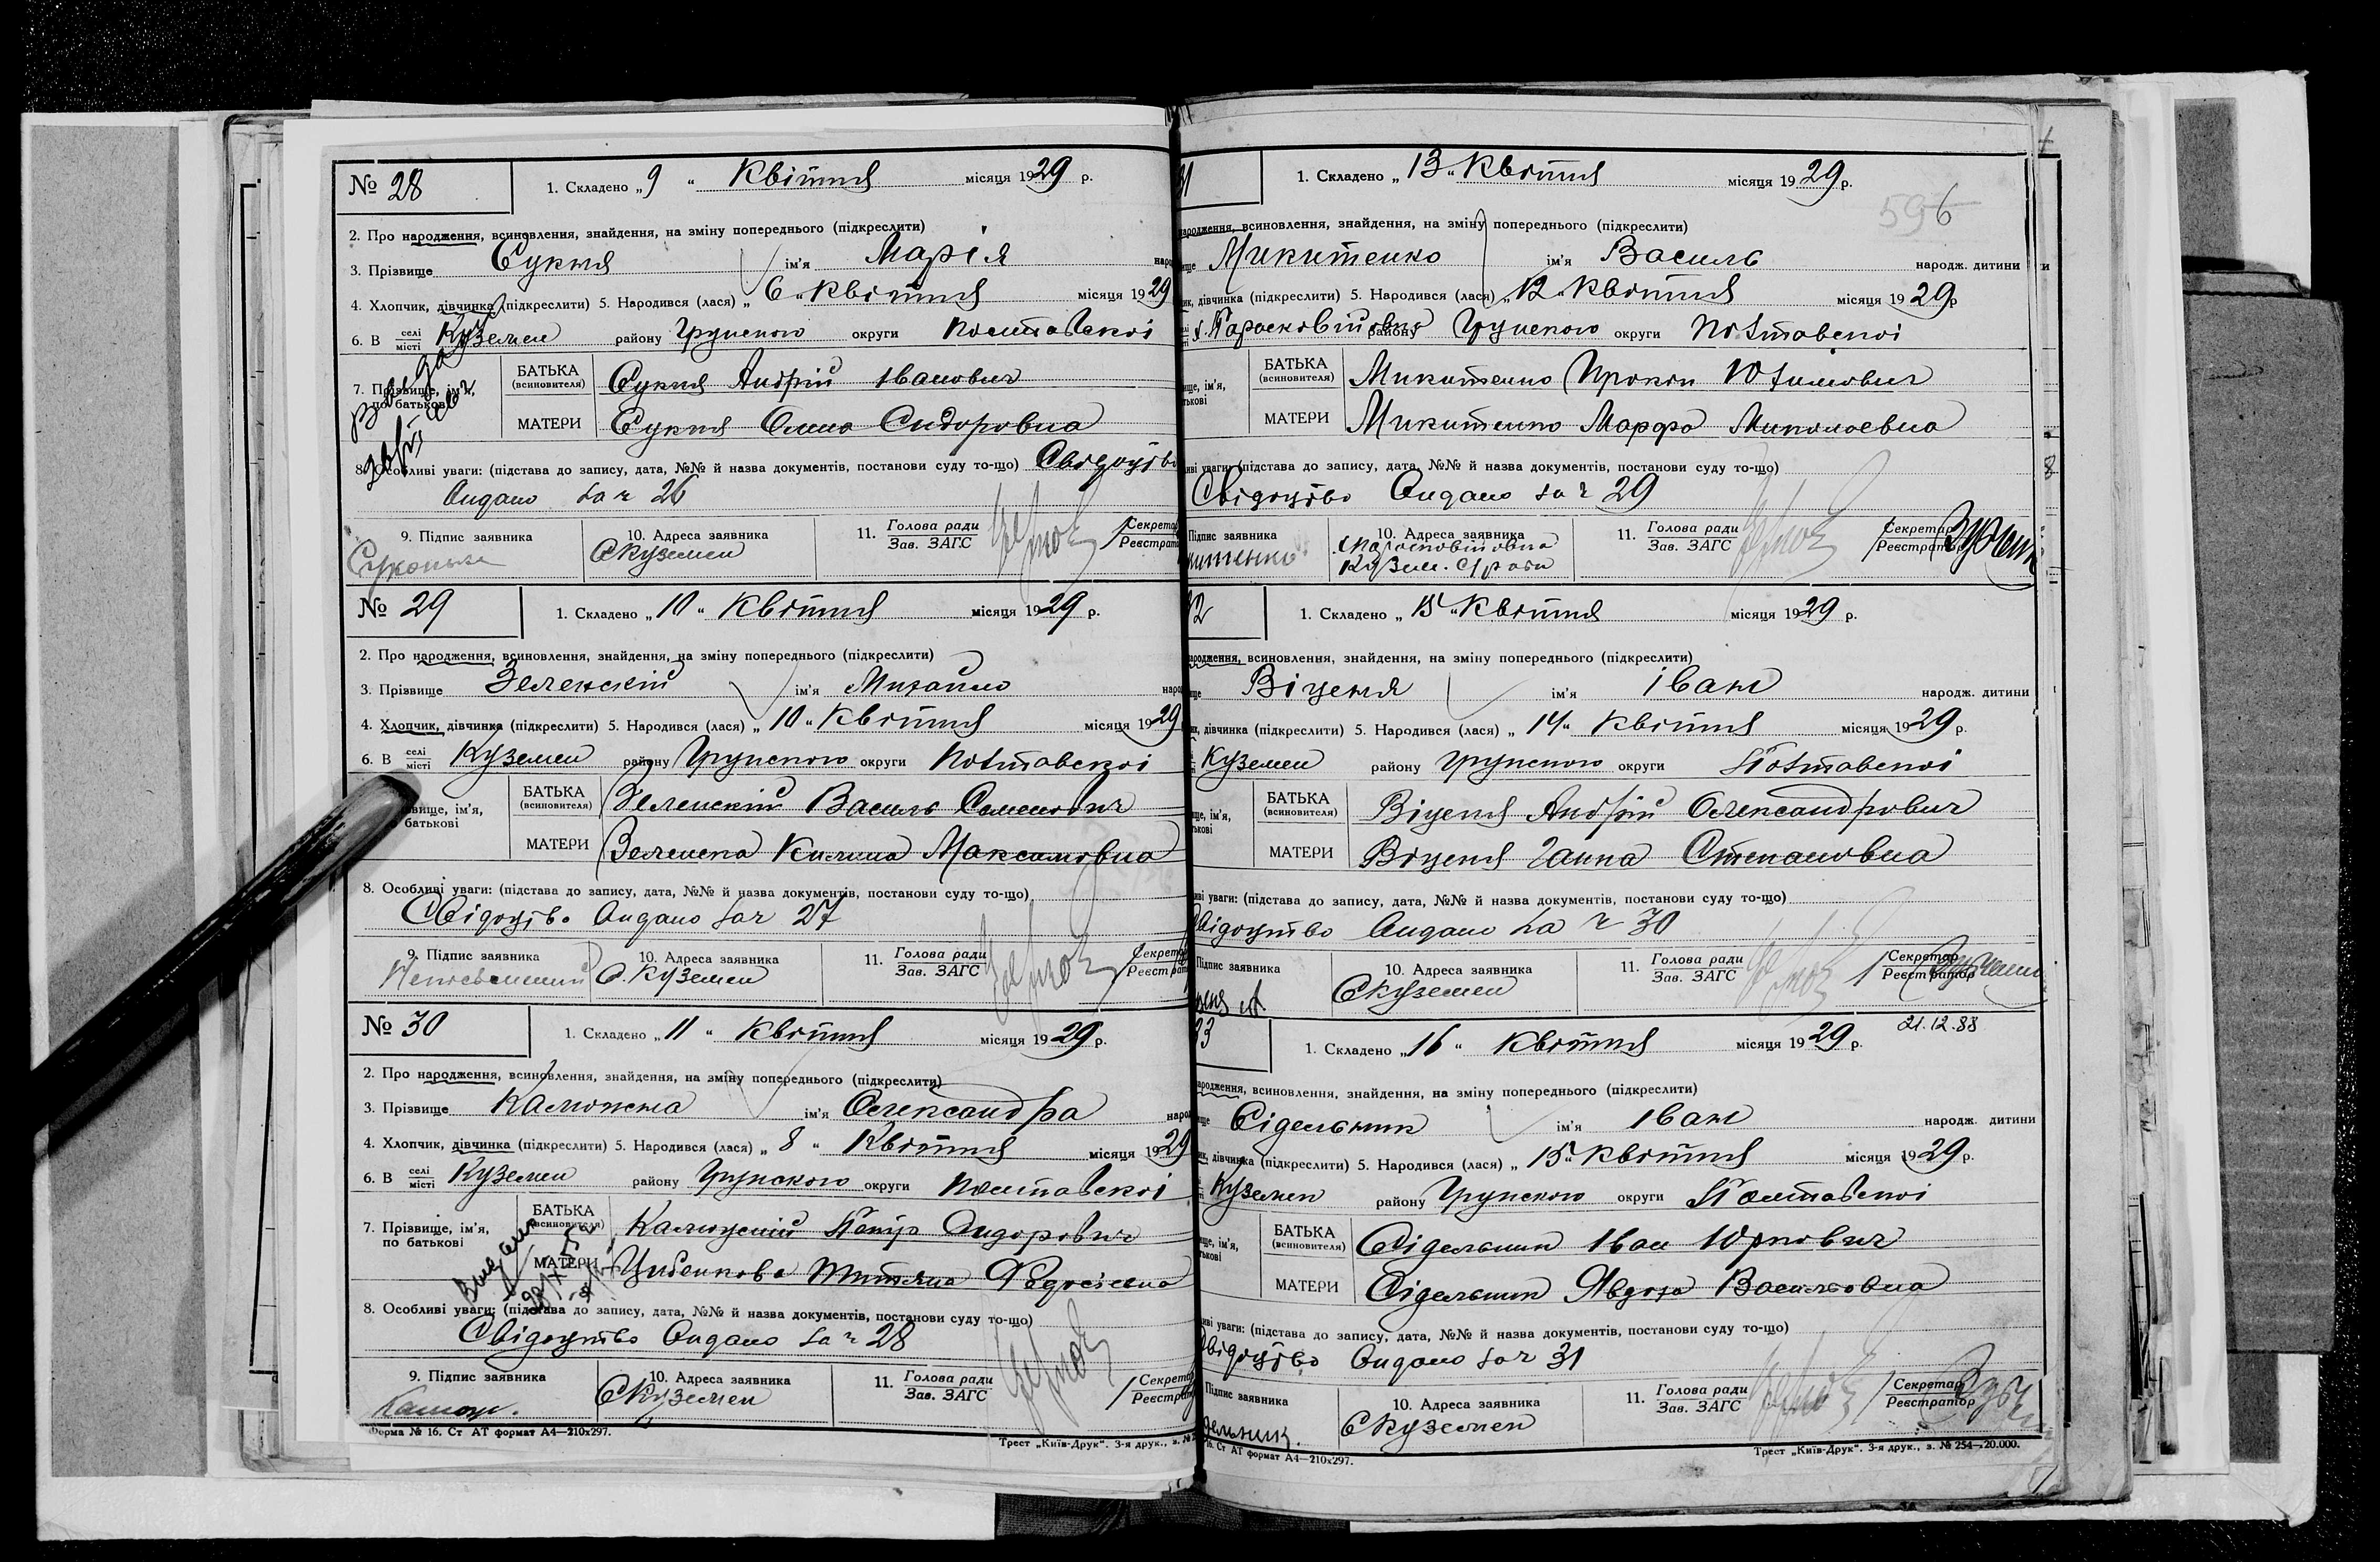 № 28
1. Складено „ 9 “ Квітня місяця 1929 р.
2. Про народження, всиновлення, знайдення, на зміну попереднього (підкреслити)
3. Прізвище Сукня ім'я Марія
4. Хлопчик, дівчинка (підкреслити) 5. Народився (лася) „ 6 “ Квітня місяця 1929
6. В селі місті Куземен району Грунського округи Полтавскоі
7. Прізвище, ім'я, по батькові
БАТЬКА (всиновителя) Сукня Андрій Іванович
МАТЕРИ Сукня Олена Сидоровна
8. Особливі уваги: (підстава до запису, дата, №№ й назва документів, постанови суду то-що) Свідоцтво
Видано за ч 26
9. Підпис заявника
10. Адреса заявника
С Куземен
11. Голова ради
Зав. ЗАГС
№ 29
1. Складено „ 10 “ Квітня місяця 1929 р.
2. Про народження, всиновлення, знайдення, на зміну попереднього (підкреслити)
3. Прізвище Зеленскій ім'я Михайло
4. Хлопчик, дівчинка (підкреслити) 5. Народився (лася) „ 10 “ Квітня місяця 1929
6. В селі місті Куземен району Грунського округи Полтавскоі
ім'я,
батькові
БАТЬКА (всиновителя) Зеленскій Василь Семенович
МАТЕРИ Зеленска Килина Максимовна
8. Особливі уваги: (підстава до запису, дата, №№ й назва документів, постанови суду то-що)
Свідоцтво Видано за ч 27
9. Підпис заявника
10. Адреса заявника
С. Куземен
11. Голова ради
Зав. ЗАГС
№ 30
1. Складено „ 11 “ Квітня місяця 1929 р.
2. Про народження, всиновлення, знайдення, на зміну попереднього (підкреслити)
3. Прізвище Калюжна ім'я Олександра
4. Хлопчик, дівчинка (підкреслити) 5. Народився (лася) „ 8 “ Квітня місяця 1929
6. В селі місті Куземен району Грунського округи Полтавскоі
7. Прізвище, ім'я, по батькові
БАТЬКА (всиновителя) Петр Сидорович
МАТЕРИ Цибенкова Титяна Федосіевна
8. Особливі уваги: (підстава до запису, дата, №№ й назва документів, постанови суду то-що)
Свідоцтво Видано за ч 28
9. Підпис заявника
10. Адреса заявника
С Куземен
11. Голова ради
Зав. ЗАГС
Форма № 16. Ст АТ формат А4—210x297.
Трест „Київ-Друк“. 3-я друк., з. №
31
1. Складено „ 13 “ Квітня місяця 1929 р.
596
народження, всиновлення, знайдення, на зміну попереднього (підкреслити)
Микитенко ім'я Василь народж. дитини
дівчинка (підкреслити) 5. Народився (лася) „ 12 “ Квітня місяця 1929 р
х. Парасковійовка району Грунського округи Полтавскоі
БАТЬКА (всиновителя) Микитенко Прокоп Юхимович
МАТЕРИ Микитенко Марфа Миколаевна
уваги: (підстава до запису, дата, №№ й назва документів, постанови суду то-що)
Свідоцтво Видано за ч 29
Підпис заявника
10. Адреса заявника
х Парасковійовка
Кузем. С/ради
11. Голова ради
Зав. ЗАГС
Секретар
Реєстратор
32
1. Складено „ 15 “ Квітня місяця 1929 р.
народження, всиновлення, знайдення, на зміну попереднього (підкреслити)
Віценя ім'я Іван народж. дитини
дівчинка (підкреслити) 5. Народився (лася) „ 14 “ Квітня місяця 1929 р.
Куземен району Грунського округи Полтавскоі
БАТЬКА (всиновителя) Віценя Андрій Олександрович
МАТЕРИ Віценя Ганна Степановна
уваги: (підстава до запису, дата, №№ й назва документів, постанови суду то-що)
Свідоцтво Видано за ч 30
Підпис заявника
10. Адреса заявника
С Куземен
11. Голова ради
Зав. ЗАГС
Секретар
Реєстратор
33
1. Складено „ 16 “ Квітня місяця 1929 р.
21.12.88
народження, всиновлення, знайдення, на зміну попереднього (підкреслити)
Сідельник ім'я Іван народж. дитини
дівчинка (підкреслити) 5. Народився (лася) „ 15 “ Квітня місяця 1929 р.
Куземен району Грунського округи Полтавскоі
БАТЬКА (всиновителя) Сідельник Іван Юркович
МАТЕРИ Сідельник Явдоха Васильовна
уваги: (підстава до запису, дата, №№ й назва документів, постанови суду то-що)
Свідоцтво Видано за ч 31
Підпис заявника
10. Адреса заявника
С Куземен
11. Голова ради
Зав. ЗАГС
Секретар
Реєстратор
16. Ст АТ формат А4—210x297.
Трест „Київ-Друк“. 3-я друк., з. № 254—20.000.